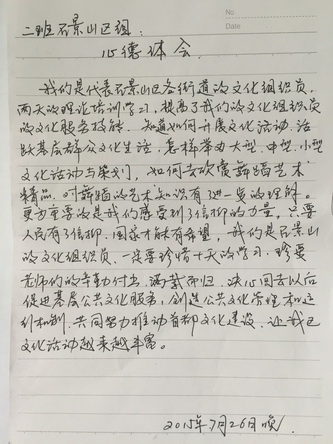 No.
Date
二班石景山区组：
心德体会
我们是代表石景山区各街道的文化组织员，
两天的理论培训学习，提高了我们的文化组织员
的文化服务技能。知道如何开展文化活动，活
跃基层群众文化生活，怎样举办大型、中型、小型
文化活动与策划，如何去欣赏舞蹈艺术
精品，对舞蹈的艺术知识有了进一步的理解。
更为重要的是我们感受到了信仰的力量，只要
人民有了信仰，国家才能有希望，我们是石景山
的文化组织员，一定要珍惜十天的学习，珍重
老师们的辛勤付出，满载而归，决心回去以后
促进基层公共文化服务，创造公共文化管理和运
行机制，共同努力推动首都文化建设，让我们
文化活动越来越丰富。
2015年7月26日晚